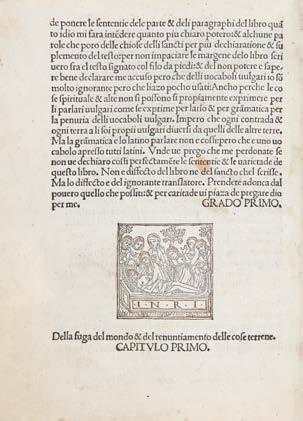 de ponere le sententie dele parte & deli paragraphi del libro quã
to idio mi fara intẽdere quanto piu chiaro potero: & alchune pa
role che poro delle chiose delli sancti per piu dechiaratione & su
plemento del testo: per non impaciare le margene delo libro scri
uero fra el testo signato col filo da pie di a: & del non potere e sape
re bene declarare me accuso pero che delli uocabuli uulgari io sõ
molto ignorante pero che li azo pocho usati: Ancho perche le co
se spirituale & alte non si possono si propiamente exprimere per
li parlari uulgari come se exprime per latio & per grãmatica per
la penuria delli uocabuli uulgari. Impero che ogni contrada &
ogni terra a li soi propii uulgari diuersi da quelli de altre terre.
Ma la grãmatica e lo latino parlare non e cosi: pero che e uno uo
cabolo apresso tutti latini. Vnde ue prego che me perdonate se
non ue dechiaro cosi perfectamẽte le sententie & le uarietade de
questo libro. Non e diffecto del libro ne del sancto che l scrisse.
Ma lo diffecto e del ignorante translatore. Prendete adonca dal
pouero quello che possi: & per caritade ui piaza de pregare dio
per me. GRADO PRIMO.
I · N · R · I
Della fuga del mondo & del renuntiamento delle cose terrene.
CAPITVLO PRIMO.